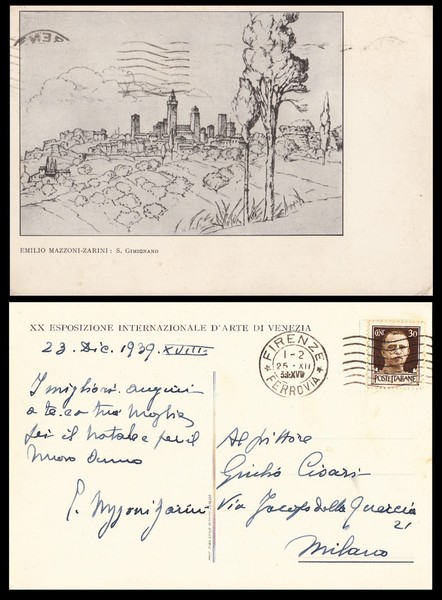 EMILIO MAZZONI-ZARINI: S. GIMIGNANO
XX ESPOSIZIONE INTERNAZIONALE D'ARTE DI VENEZIA
23. Dic. 1939. XVIII
I migliori auguri
a te e a tua moglie
per il natale e per il
Nuovo Anno
E. Mazzoni Zarini
FIRENZE
1-2
25 · XII
FERROVIA
CENT 30
POSTE ITALIANE
Al pittore
Giulio Cisari
Via Jacopo della Quercia
21
Milano